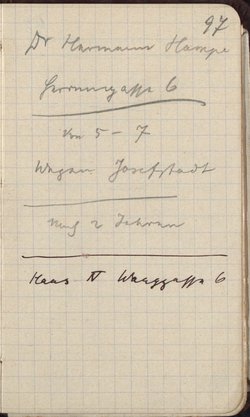 97
Dr Hermann Hampe
Herrengasse 6
Von 5 – 7
Wegen Josefstadt
2 Jahren
Haas IV Waaggasse 6